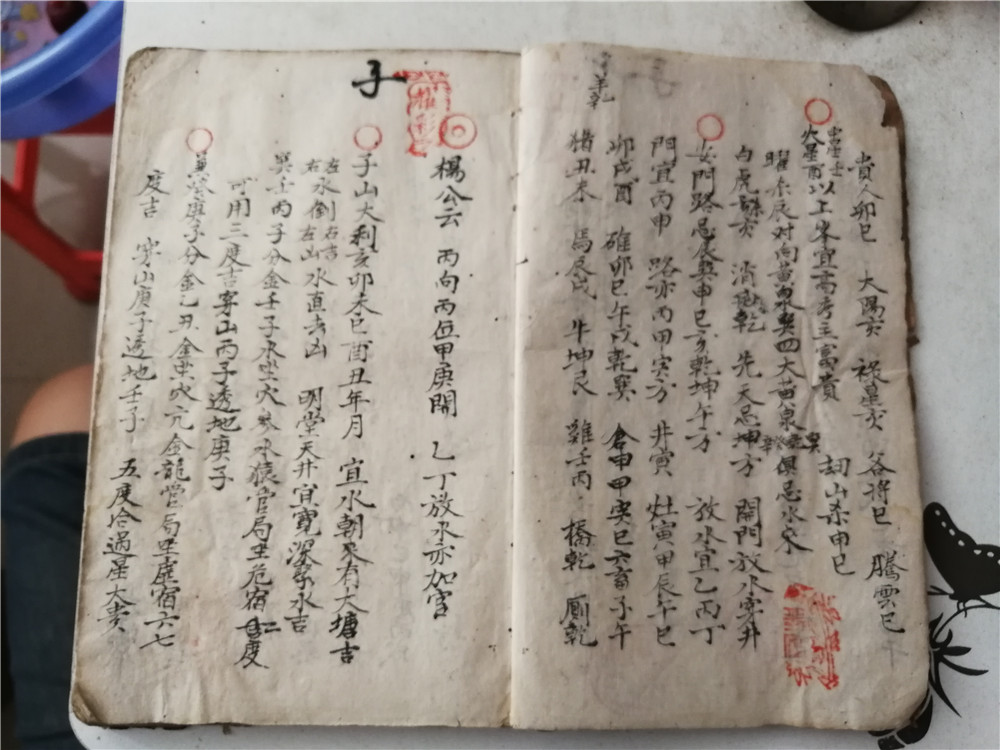 貴人卯巳 大陽亥 祿星亥 谷將巳 騰雲巳
火星酉以上峯宜高秀主富貴 刼山杀申巳
曜 辰对丙黄泉巽四大黄泉 俱忌水来
白虎 亥 消 乾 先天忌坤方 開門放水穿井
女門路忌辰巽申巳亥乾坤午方 放水宜乙丙丁
門宜丙申 路亦丙甲寅方 井寅 灶寅甲辰午巳
卯戌酉 碓卯巳午戌乾巽 倉申甲寅巳六畜子午
猪丑未 馬辰戌 牛坤艮 雞壬丙 橋乾 厠乾
羊乾
子
楊公云 丙向丙位甲庚開 乙丁放水亦加官
子山大利亥卯未巳酉丑年月 宜水朝來有大塘吉
左水倒右吉
右水倒左山水直去凶 明堂天井宜寬深 水吉
巽士丙子分金壬子水坐穴 水猿官局坐危宿 度
可用三度吉穿山丙子透地庚子
庚子分金乙丑金坐穴亢金龍营局坐虚宿六七
度吉 穿山庚子透地壬子 五度合過星大貴